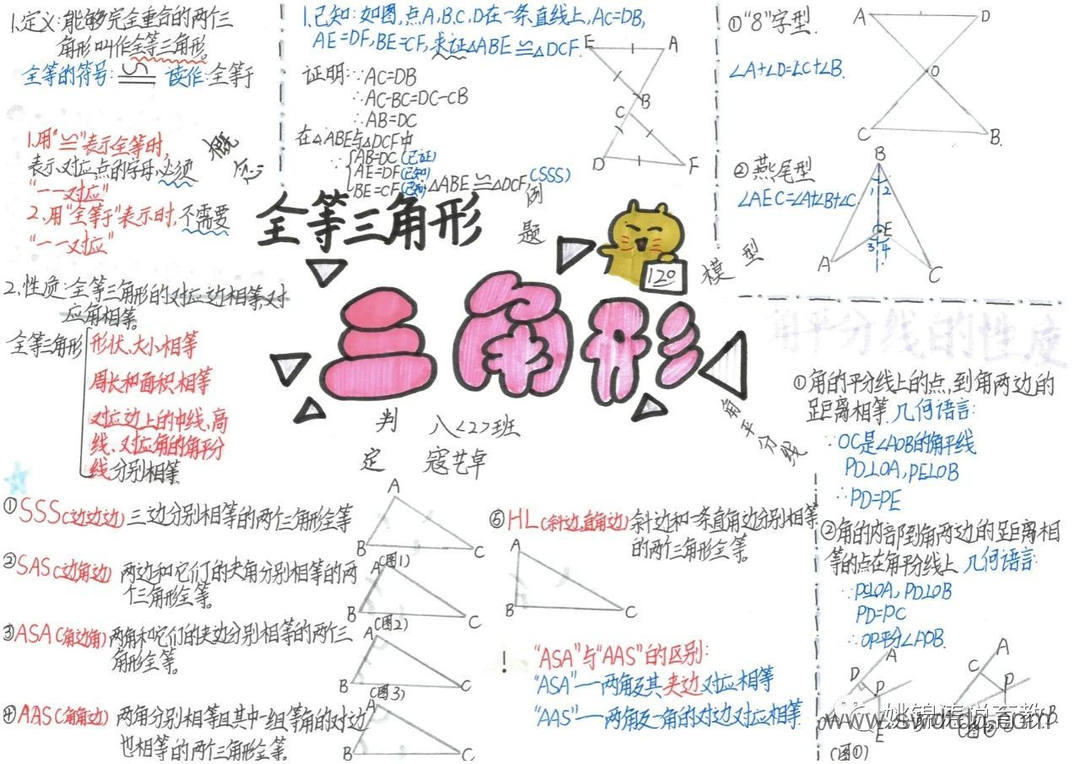 1.定义:能够完全重合的两个三
角形叫作全等三角形。
全等的符号:≌ 读作:全等于
1.用"≌"表示全等时,
表示对应点的字母必须
"一一对应"
2.用"全等于"表示时,不需要
"一一对应"
概念
2.性质:全等三角形的对应边相等,对
应角相等。
全等三角形
形状、大小相等
周长和面积相等
对应边上的中线、高
线、对应角的角平分
线分别相等
1.已知:如图,点A,B,C,D在一条直线上,AC=DB,
AE=DF,BE=CF,求证△ABE≌△DCF.
证明:∵AC=DB
∴AC-BC=DC-CB
∴AB=DC
在△ABE与△DCF中
∵AB=DC(已证)
AE=DF(已知)
BE=CF(已知)
∴△ABE≌△DCF(SSS)
E A
B
C
D F
例题
全等三角形
120
三角形
判定
八<2>班
①"8"字型.
∠A+∠D=∠C+∠B.
A D
O
C B
②燕尾型
∠AEC=∠A+∠B+∠C.
B
1 2
E
3 4
A C
模型
角平分线的性质
①角的平分线上的点,到角两边的
距离相等.几何语言:
∵OC是∠AOB的角平线
PD⊥OA,PE⊥OB
∴PD=PE
②角的内部到角两边的距离相
等的点在角平分线上 几何语言:
∵PC⊥OA,PD⊥OB
PD=PC
∴OP平分∠AOB
角平分线
①SSS(边边边)三边分别相等的两个三角形全等
A
B C
(图1)
②SAS(边角边) 两边和它们的夹角分别相等的两
个三角形全等。
A
B C
(图2)
③ASA(角边角)两角和它们的夹边分别相等的两个三
角形全等。
A
B C
(图3)
④AAS(角角边) 两角分别相等且其中一组等角的对边
也相等的两个三角形全等。
A
B C
⑤HL(斜边,直角边)斜边和一条直角边分别相等
的两个三角形全等。
A
B C
!
"ASA"与"AAS"的区别:
"ASA"—两角及其夹边对应相等
"AAS"—两角及一角的对边对应相等.
A
D P
E
(图①)
A
C P
B
www.swdtdg.com